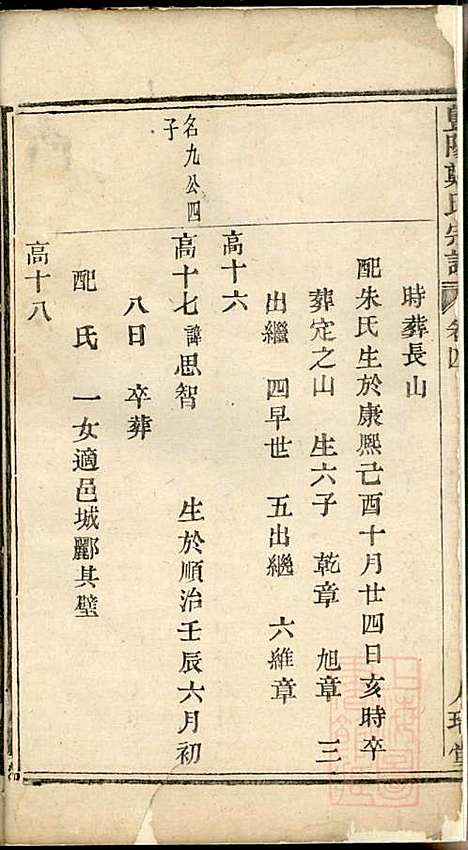 暨陽鄭氏宗譜
卷四
時葬長山
配朱氏生於康熙己酉十月廿四日亥時卒
葬定之山 生六子 乾章 旭章 三
出繼 四早世 五出繼 六維章
高十六
名九公四
子
高十七諱思智 生於順治壬辰六月初
八日 卒葬
配氏 一女適邑城酈其璧
高十八